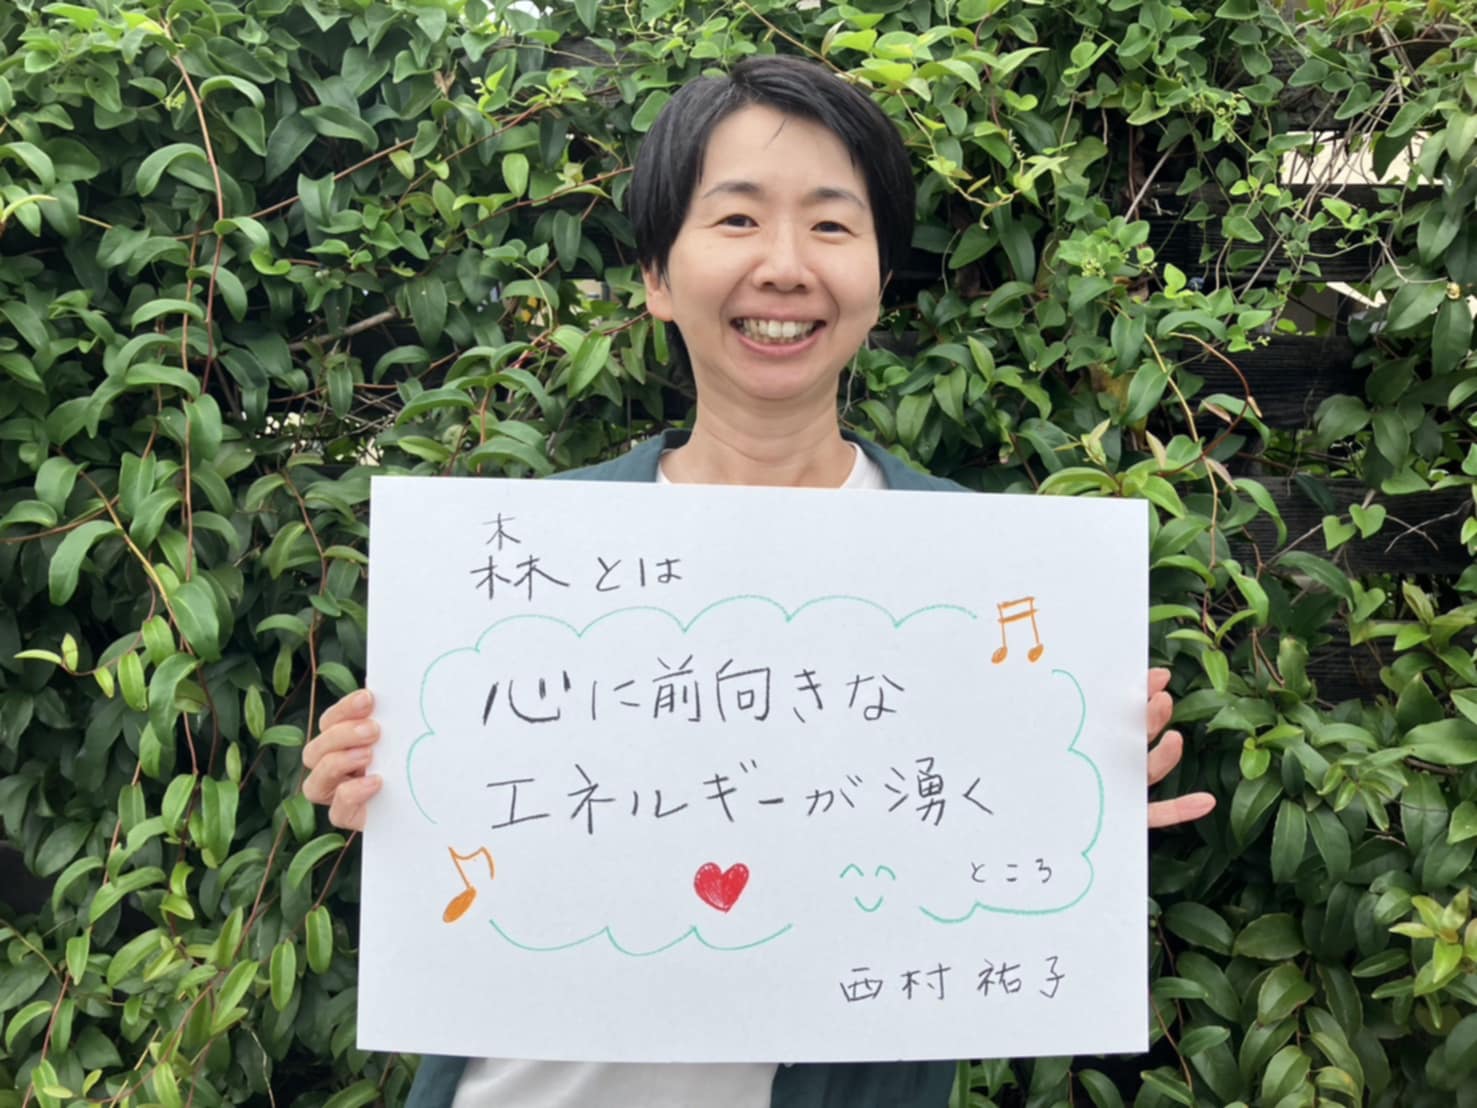 森とは
心に前向きな
エネルギーが湧く
ところ
西村 祐子